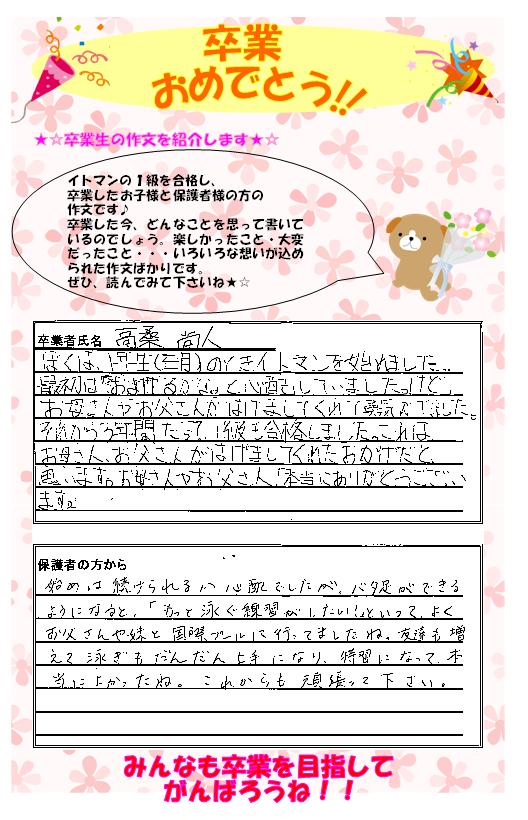 卒業
おめでとう!!
★☆卒業生の作文を紹介します★☆
イトマンの1級を合格し、
卒業したお子様と保護者様の方の
作文です♪
卒業した今、どんなことを思って書いて
いるのでしょう。楽しかったこと・大変
だったこと・・・いろいろな想いが込め
られた作文ばかりです。
ぜひ、読んでみて下さいね★☆
卒業者氏名 高桑 尚人
ぼくは、1年生(三月)のときイトマンを始めました。
最初は「およげるかな。」と心配もしていました。けど、
お母さんやお父さんがはげましてくれて勇気がでました。
それから 年間たって、1級も合格しました。これは
お母さん、お父さんがはげましてくれたおかげだと
思います。お母さんやお父さん「本当にありがとうござい
ます。
保護者の方から
始めは続けられるか心配でしたが、バタ足ができる
ようになると、「もっと泳ぐ練習がしたい!」といって、よく
お父さんや妹と国際プールに行ってましたね。友達も増
えて泳ぎもだんだん上手になり、特習になって、本
当によかったね。これからも頑張って下さい。
みんなも卒業を目指して
がんばろうね!!